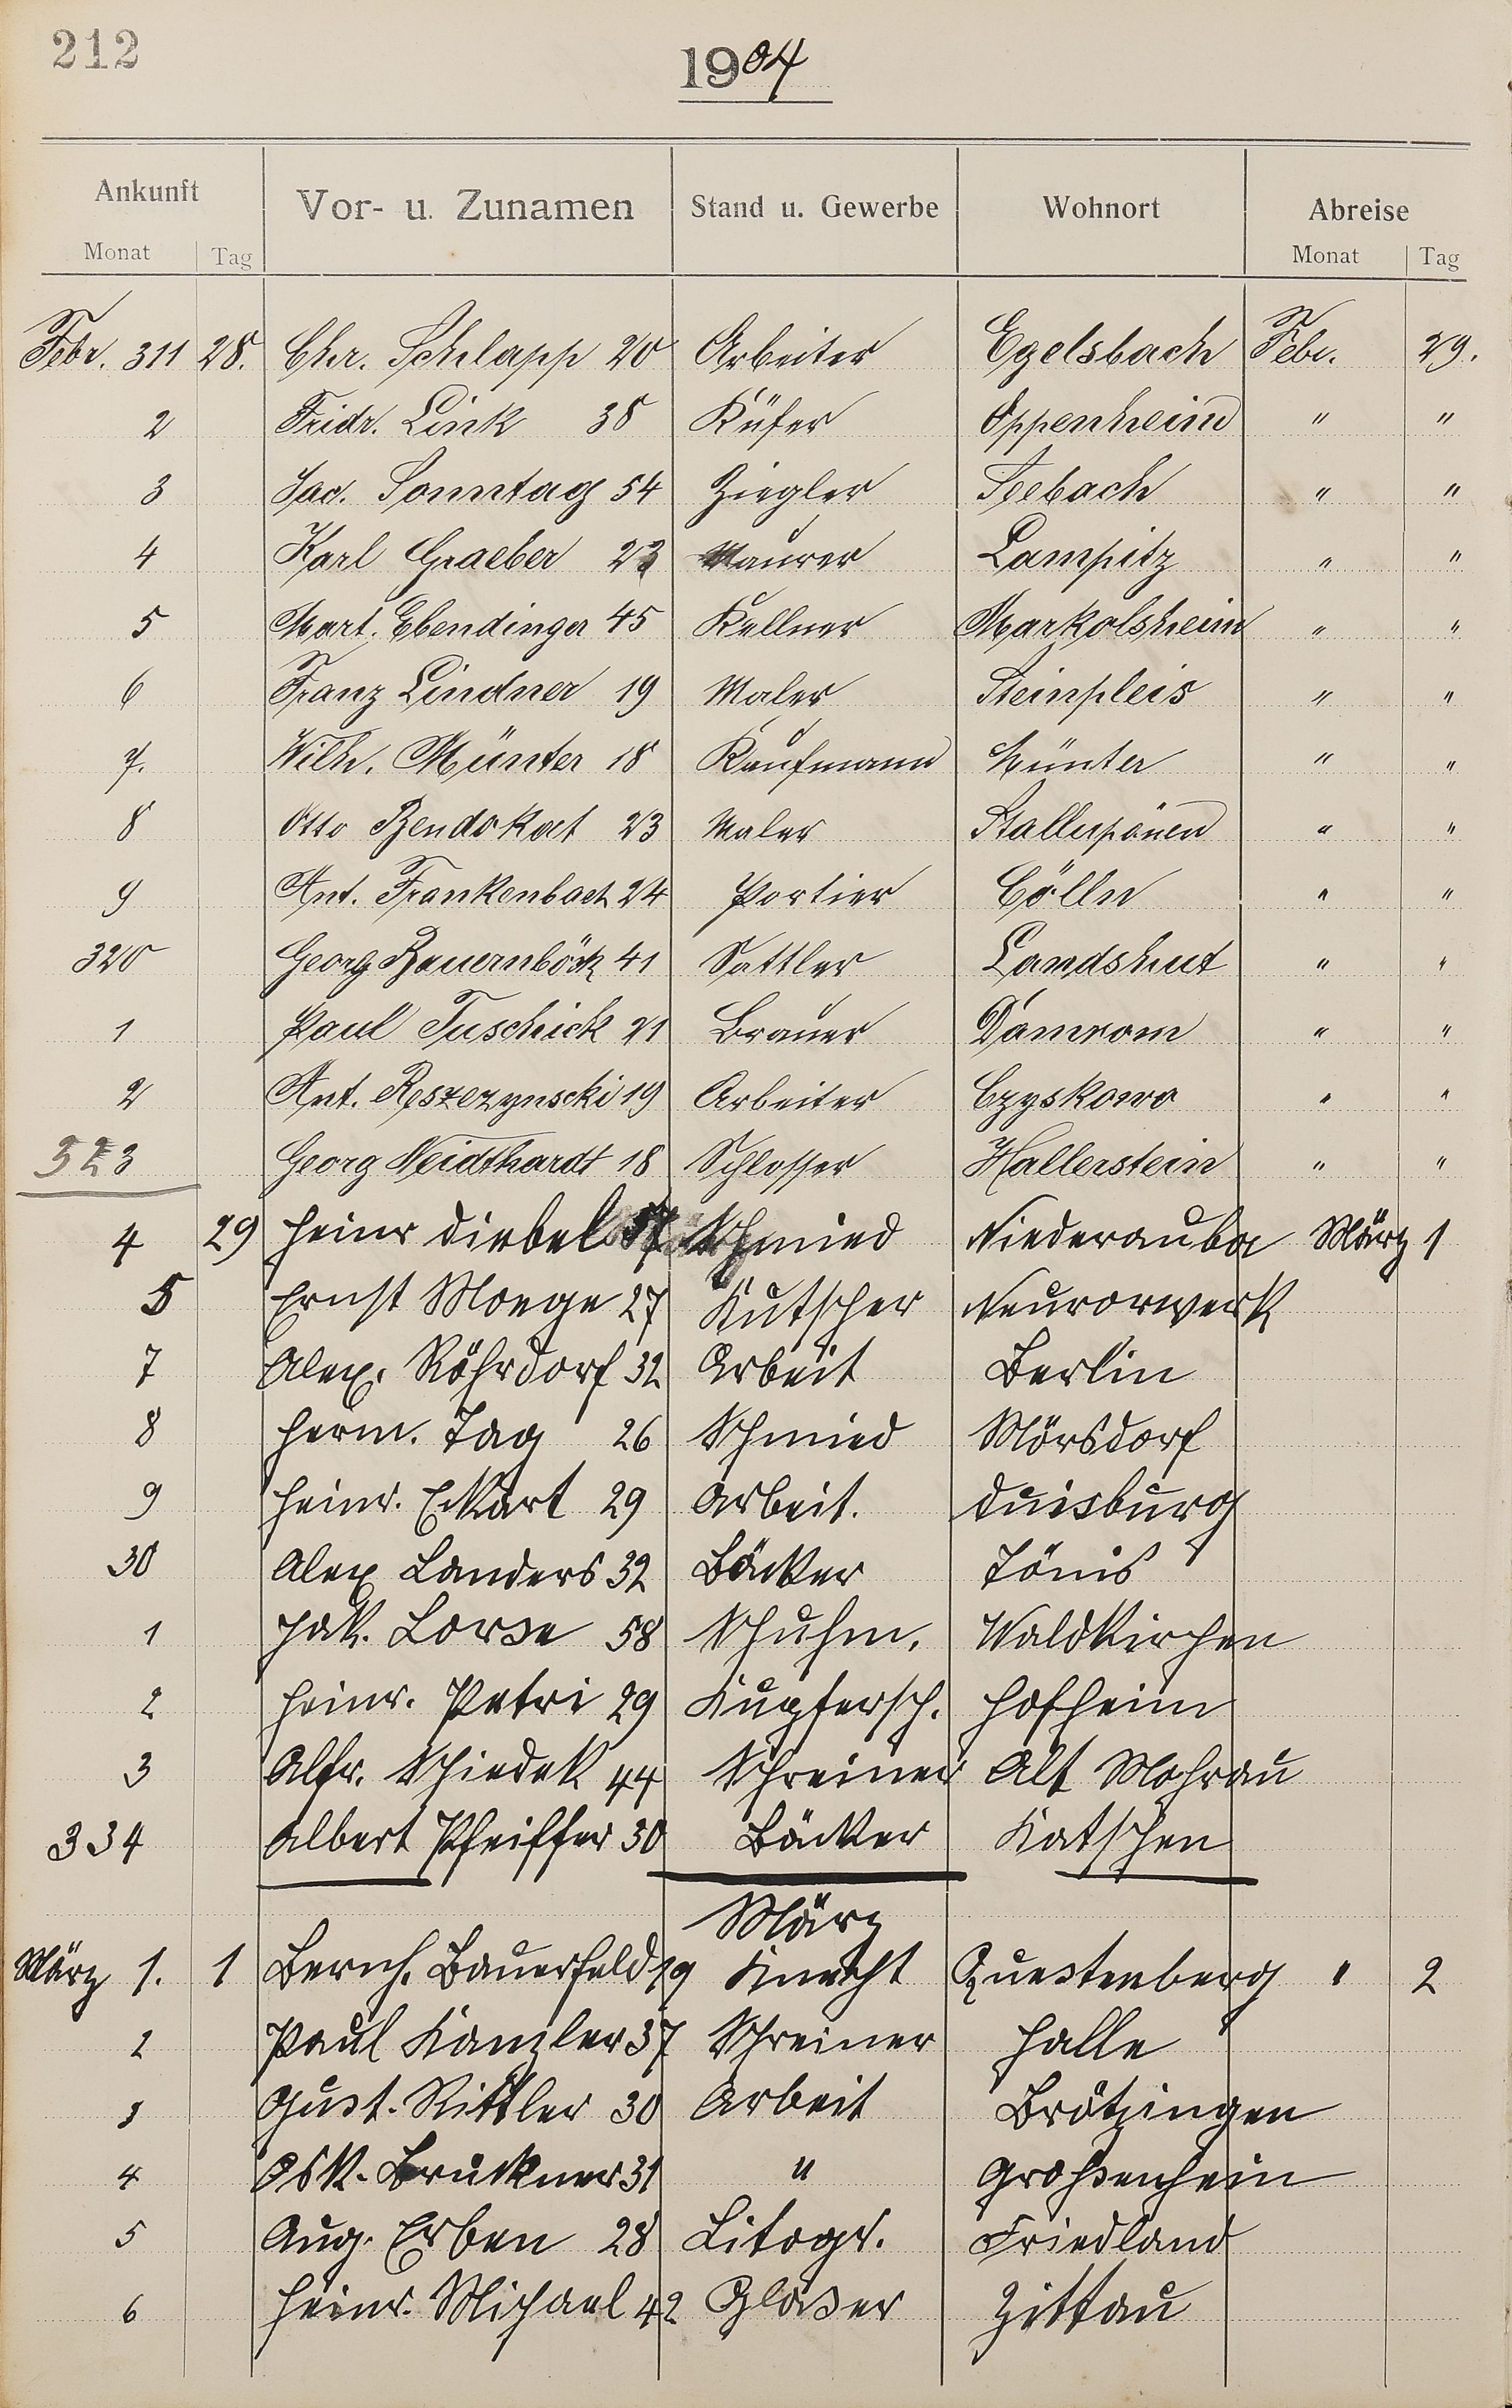 212
1904
Ankunft Vor- u. Zunamen Stand u. Gewerbe Wohnort Abreise
Monat Tag Monat Tag
Febr. 311 28. Chr. Schlapp 20 Arbeiter Egelsbach Febr. 29.
2 Fridr. Link 38 Küfer Oppenheim " "
3 Jac. Sonntag 54 Ziegler Seebach " "
4 Karl Graeber 23 Maurer Lampitz " "
5 Mart. Ebendinger 45 Kellner Markolsheim " "
6 Franz Lindner 19 Maler Steinpleis " "
7. Wilh. Münter 18 Kaufmann Münter " "
8 Otto Bendokat 23 Maler Stallupönen " "
9 Ant. Frankenbach 24 Portier Cölln " "
320 Georg Bauernböck 41 Sattler Landshut " "
1 Paul Tuschick 21 Brauer Damrom " "
2 Ant. Reszezynscki 19 Arbeiter Czyskowo " "
323 Georg Neidthardt 18 Schlosser Hallerstein " "
4 29 Heinr Diebel 57 Schmied Niederauba März 1
5 Ernst Moege 27 Kutscher Neuvorwerk
7 Alex. Röhrdorf 32 Arbeit Berlin
8 Herm. Tag 26 Schmied Mörsdorf
9 Heinr. Eckart 29 Arbeit. Duisburg
30 Alex Landers 32 Bäcker Tönis
1 Jak. Lorse 58 Schuhm. Waldkirchen
2 Heinr. Petri 29 Kupfersch. Hofheim
3 Alfr. Schiedek 44 Schreiner Alt Mohrau
334 Albert Pfeiffer 30 Bäcker Katschen
März
März 1. 1 Bernh. Bauerfeld 19 Knecht Questenberg " 2
2 Paul Kanzler 37 Schreiner Halle
3 Gust. Rittler 30 Arbeit Brötzingen
4 Osk. Bruckner 31 " Großenhein
5 Aug. Erben 28 Litogr. Friedland
6 Heinr. Michael 42 Glaser Zittau